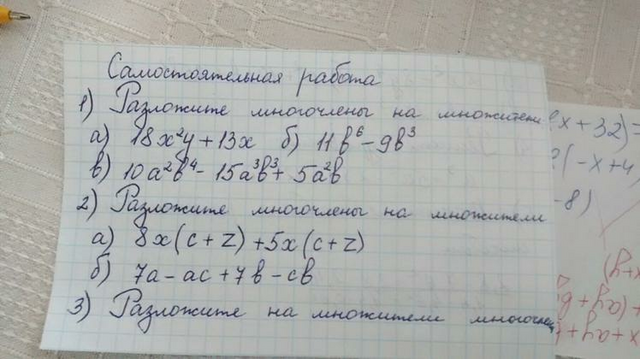 Самостоятельная работа
1) Разложите многочлены на множители
а) 18x²y + 13x б) 11b⁶ - 9b³
в) 10a²b⁴ - 15a³b³ + 5a²b
2) Разложите многочлены на множители
а) 8x(c+z) + 5x(c+z)
б) 7a - ac + 7b - cb
3) Разложите на множители многочлен
x + 32) =
(-x + 4
-8)
+y)
+ (ay +
x + ay +